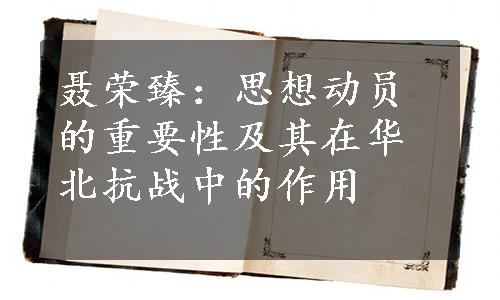 聂荣臻：思想动员
的重要性及其在华
北抗战中的作用